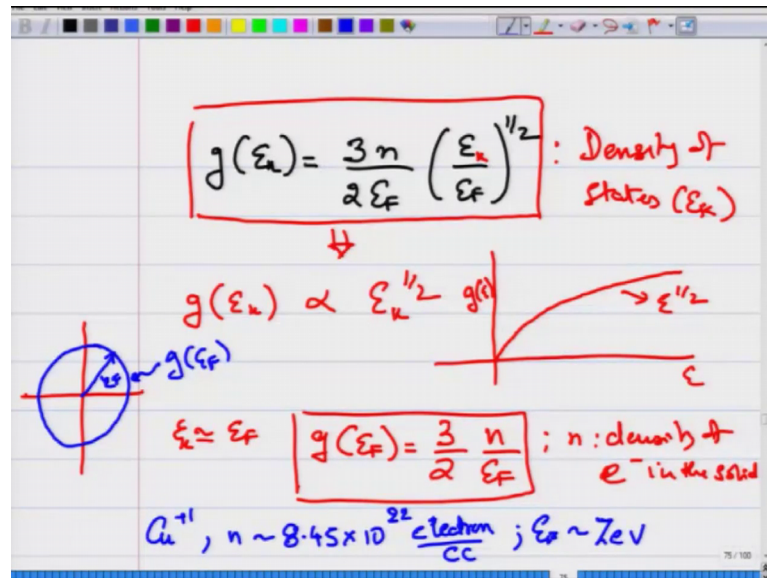 g(εₖ) = 3n / 2εF (εₖ / εF)^1/2 : Density of
States (εₖ)
⇓
g(εₖ) ∝ εₖ^1/2
g(ε)
→ ε^1/2
ε
εF
g(εF)
εₖ ≃ εF g(εF) = 3/2 n/εF ; n : density of
e⁻ in the solid
Cu⁺¹, n ~ 8.45 × 10^22 electron/cc ; εF ~ 7eV
75 / 100